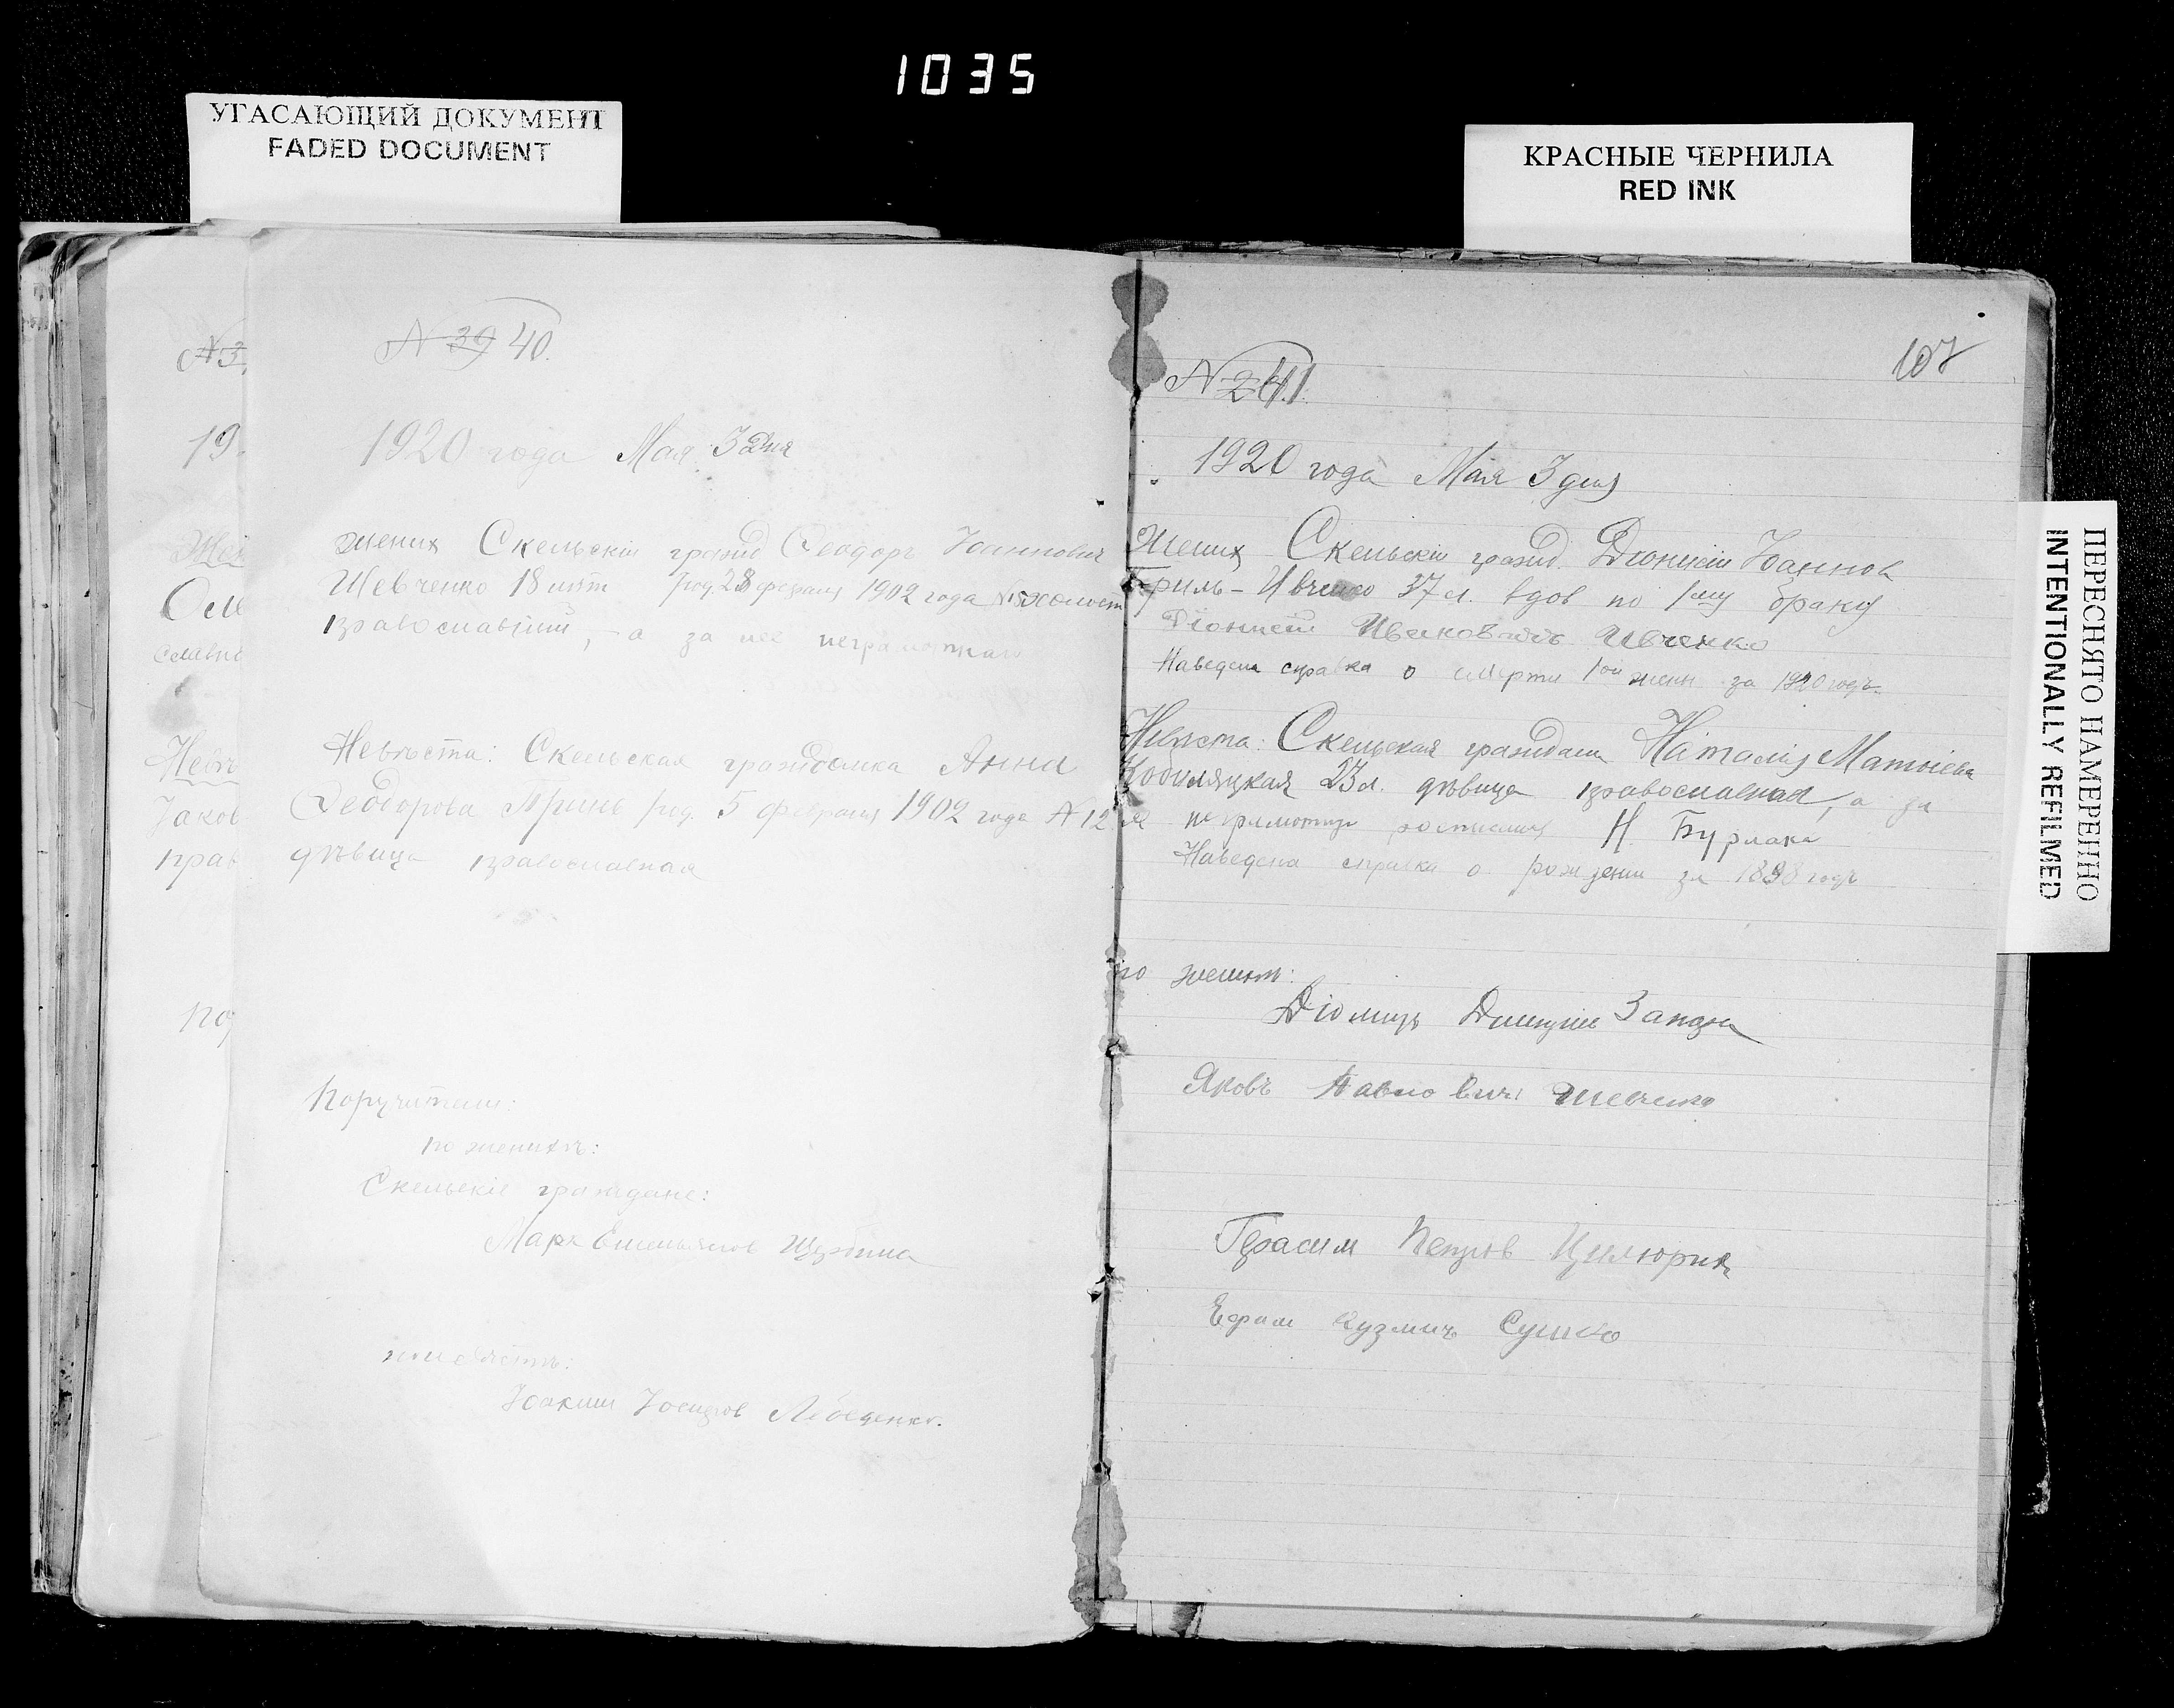 1035
УГАСАЮЩИЙ ДОКУМЕНТ
FADED DOCUMENT
КРАСНЫЕ ЧЕРНИЛА
RED INK
ПЕРЕСНЯТО НАМЕРЕННО
INTENTIONALLY REFILMED
N 3
19
Жен
Оле
Невѣ
Іаков
прав
по
N 39 40.
1920 года Мая 3 дня
жених Скельскій гражд Ѳеодоръ Іоаннович
Шевченко 18 лѣт род. 28 февраля 1902 года холост
православный, а за нее неграмотную
Невѣста: Скельская гражданка Анна
Ѳеодорова Принь род. 5 февраля 1902 года N 12
дѣвица православная
Поручители:
по женихѣ:
Скельскіе граждане:
Марк Емельянов Щербина
по невѣстѣ:
Іоаким Іосифов Лебеденко.
107
N 41.
1920 года Мая 3 дня
Жених Скельскій гражд. Діонисій Іоаннов
Бриль-Ивченко 37 л. вдов по 1му браку
Діонисій Ивановичъ Ивченко
Наведена справка о смерти 1ой жены за 1920 годъ
Невѣста: Скельская граждан Наталія Матѳіева
Кобиляцкая 23 л. дѣвица православная, а за
неграмотную росписался Н. Бурлака
Наведена справка о рожденіи за 1898 годъ
по жених:
Діомидъ Дмитріев
Яковъ Павловичъ Шевченко
Герасим Петров Цилюрик
Ефрем Кузмичъ Сушко